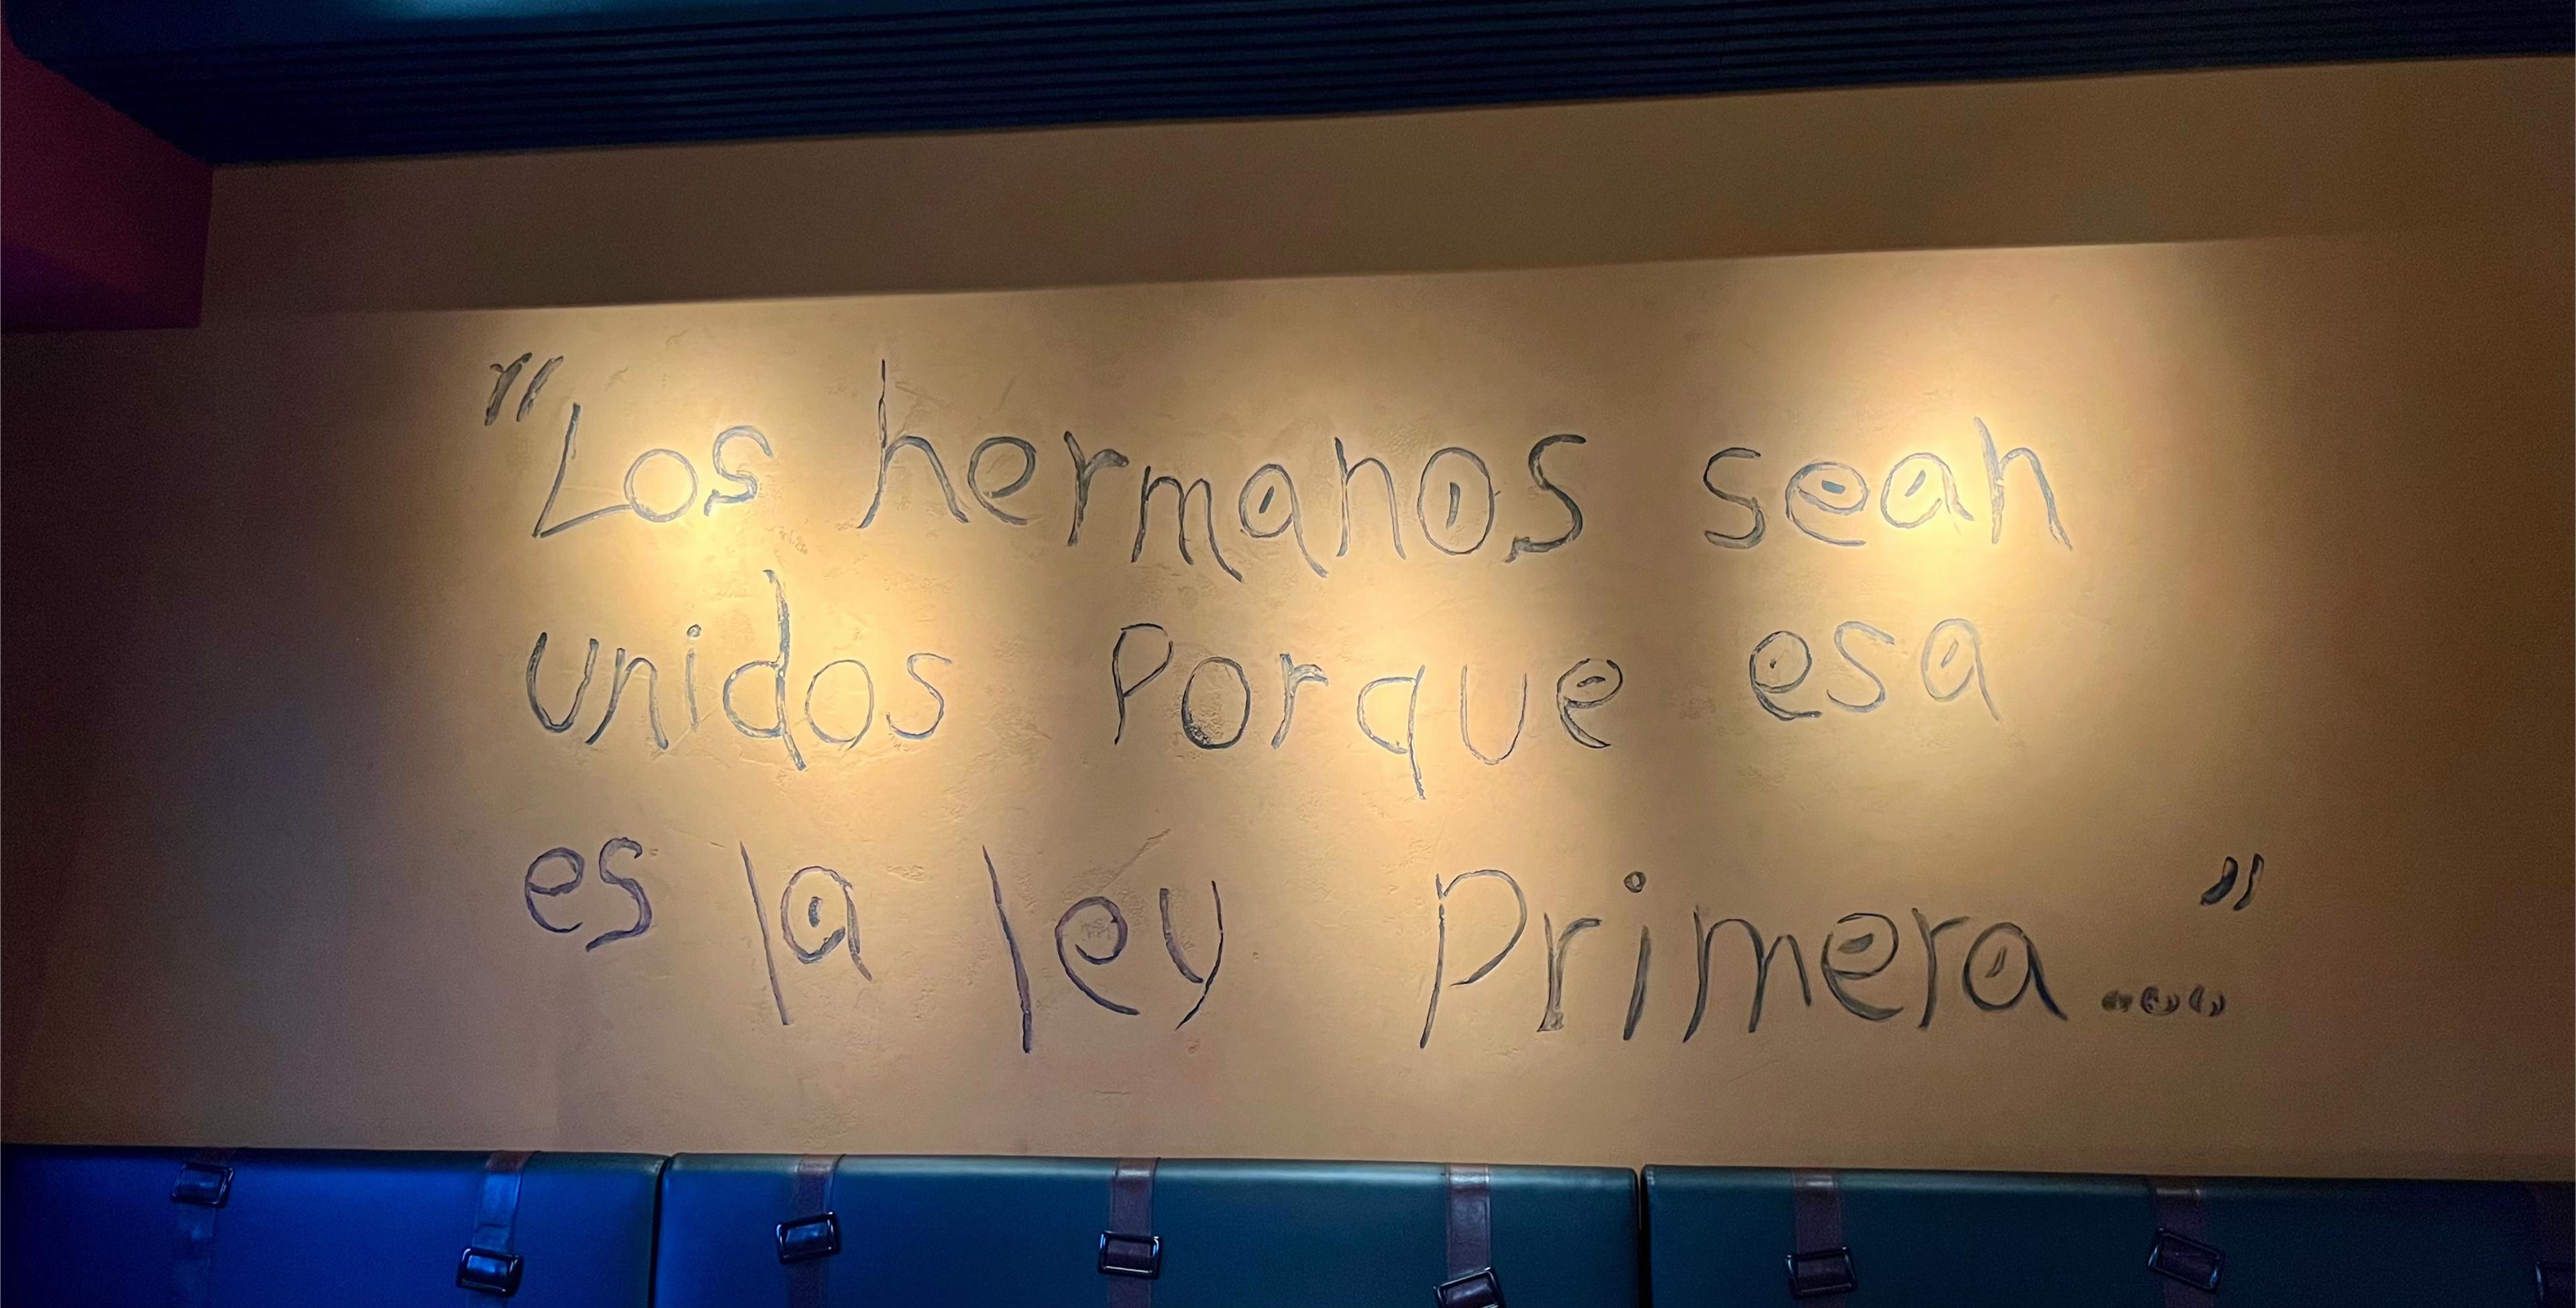 "Los hermanos sean
unidos Porque esa
es la ley Primera..."